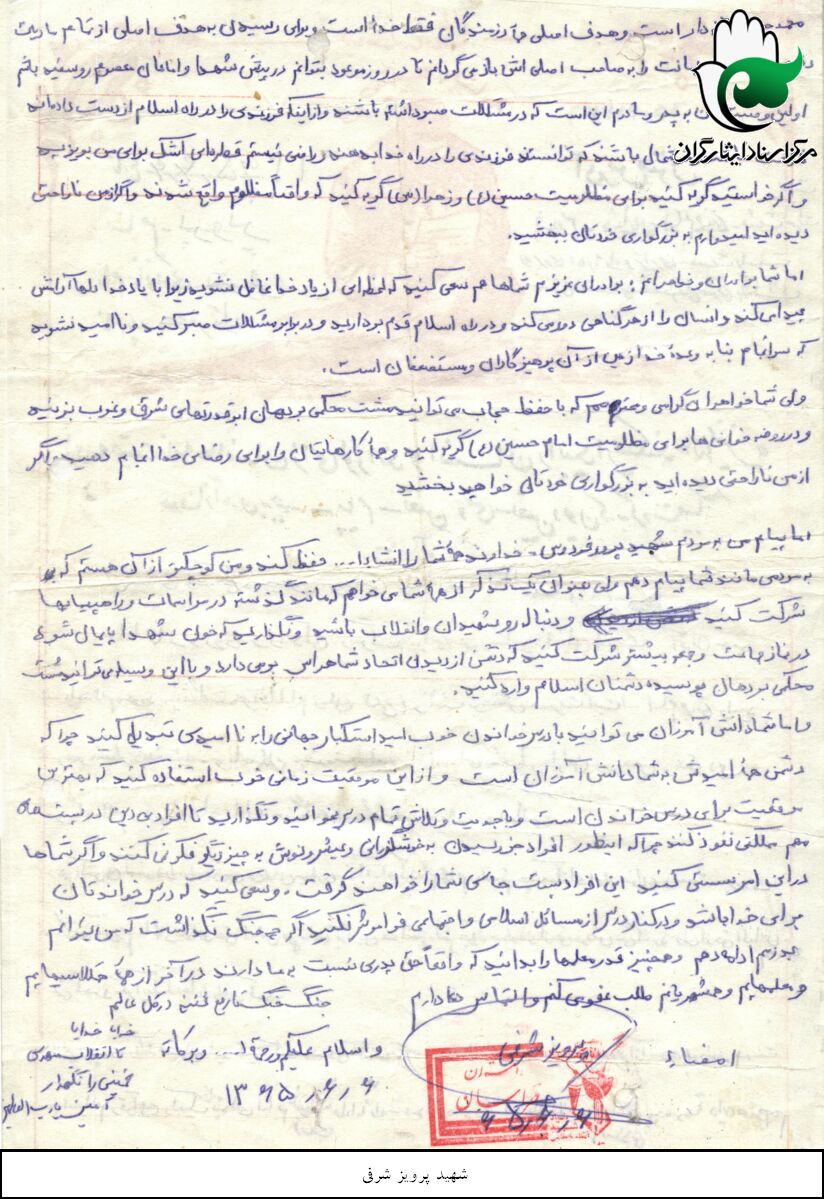 دار است و هدف اصلی همهٔ رزمندگان فقط خدا است و برای رسیدن به هدف اصلی از تمام مادیات
را به صاحب اصلی اش باز می گردانم تا در روز موعود بتوانم در پیش شهدا و امامان معصوم روسفید باشم
مرکز اسناد ایثارگران
اولین وصیت من به پدر و مادرم این است که در مشکلات صبور داشته باشند و از اینکه فرزندی را در راه اسلام از دست داده اند
باشند که توانستند فرزندی را در راه خدا بدهند راضی نیستم قطره ای اشک برای من بریزید
و اگر خواستید گریه کنید برای مظلومیت حسین (ع) و زهرا (س) گریه کنید که واقعاً مظلوم واقع شدند و اگر از من ناراحتی
دیده اید امیدوارم به بزرگواری خودتان ببخشید.
اما شما برادران و خواهرانم : برادران عزیزم شماها هم سعی کنید که لحظه ای از یاد خدا غافل نشوید زیرا با یاد خدا دلها آرامش
پیدا می کند و انسان را از هر گناهی دور می کند و در راه اسلام قدم بردارید و در برابر مشکلات صبر کنید و نا امید نشوید
که سرانجام بنا به وعدهٔ خدا زمین از آن پرهیزگاران و مستضعفان است.
ولی شما خواهران گرامی و محترمم که با حفظ حجاب می توانید مشت محکمی بر دهان ابرقدرتهای شرق و غرب بزنید
و در روضه خوانی ها برای مظلومیت امام حسین (ع) گریه کنید و همهٔ کارهایتان را برای رضای خدا انجام دهید و اگر
از من ناراحتی دیده اید به بزرگواری خودتان خواهید بخشید
اما پیام من به مردم شهید پرور فردوس. خداوند همهٔ شما را انشاءا... حفظ کند و من کوچکتر از آن هستم که به
مردمی مانند شما پیام دهم ولی بعنوان یک تذکر از همهٔ شما می خواهم که مانند گذشته در مراسمات و راهپیمایها
شرکت کنید و دنباله رو شهیدان و انقلاب باشید و نگذارید که خون شهدا پایمال شود
در نماز جماعت و جمعه بیشتر شرکت کنید که دشمن از دیدن اتحاد شما هراس دارد و با این وسیله می توانید مشت
محکمی بر دهان پوسیده دشمنان اسلام وارد کنید.
و اما شما دانش آموزان می توانید با درس خواندن خوب امید استکبار جهانی را به نا امیدی تبدیل کنید چرا که
دشمن همهٔ امیدش به شما دانش آموزان است و از این موقعیت زمانی خوب استفاده کنید که بهترین
موقعیت برای درس خواندن است و با جدیت و تلاش تمام درس بخوانید و نگذارید تا افراد بی دین در پست های
مهم مملکتی نفوذ کنند چرا که اینطور افراد جز رسیدن به خوشگذرانی و عیش و نوش به چیز دیگر فکر نمی کنند و اگر شماها
در این امر سستی کنید این افراد پست جای شما را خواهند گرفت. و سعی کنید که درس خواندنتان
برای خدا باشد و در کنار درس از مسائل اسلامی و اجتماعی فراموش نکنید اگر چه جنگ نگذاشت که من بتوانم
درسم ادامه دهم و همچنین قدر معلمها را بدانید که واقعاً حق پدری نسبت به ما دارند در آخر از همهٔ همکلاسیهایم
و معلمهایم و همشهریانم طلب عفو می کنم و التماس دعا دارم
جنگ جنگ تا رفع فتنه در کل عالم
خدایا خدایا
تا انقلاب مهدی
خمینی را نگهدار
آمین یا رب العالمین
والسلام علیکم و رحمة ا... و برکاته
امضاء
پرویز شرفی
۱۳۶۵/۶/۶
شهید پرویز شرفی